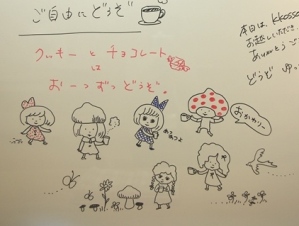 ご自由にどうぞ
本日は、kkosso
お越しいただき
ありがとうご
どうぞ ゆっ
クッキーとチョコレート
は
お一つずつどうぞ。
おかわりー
めるつよ